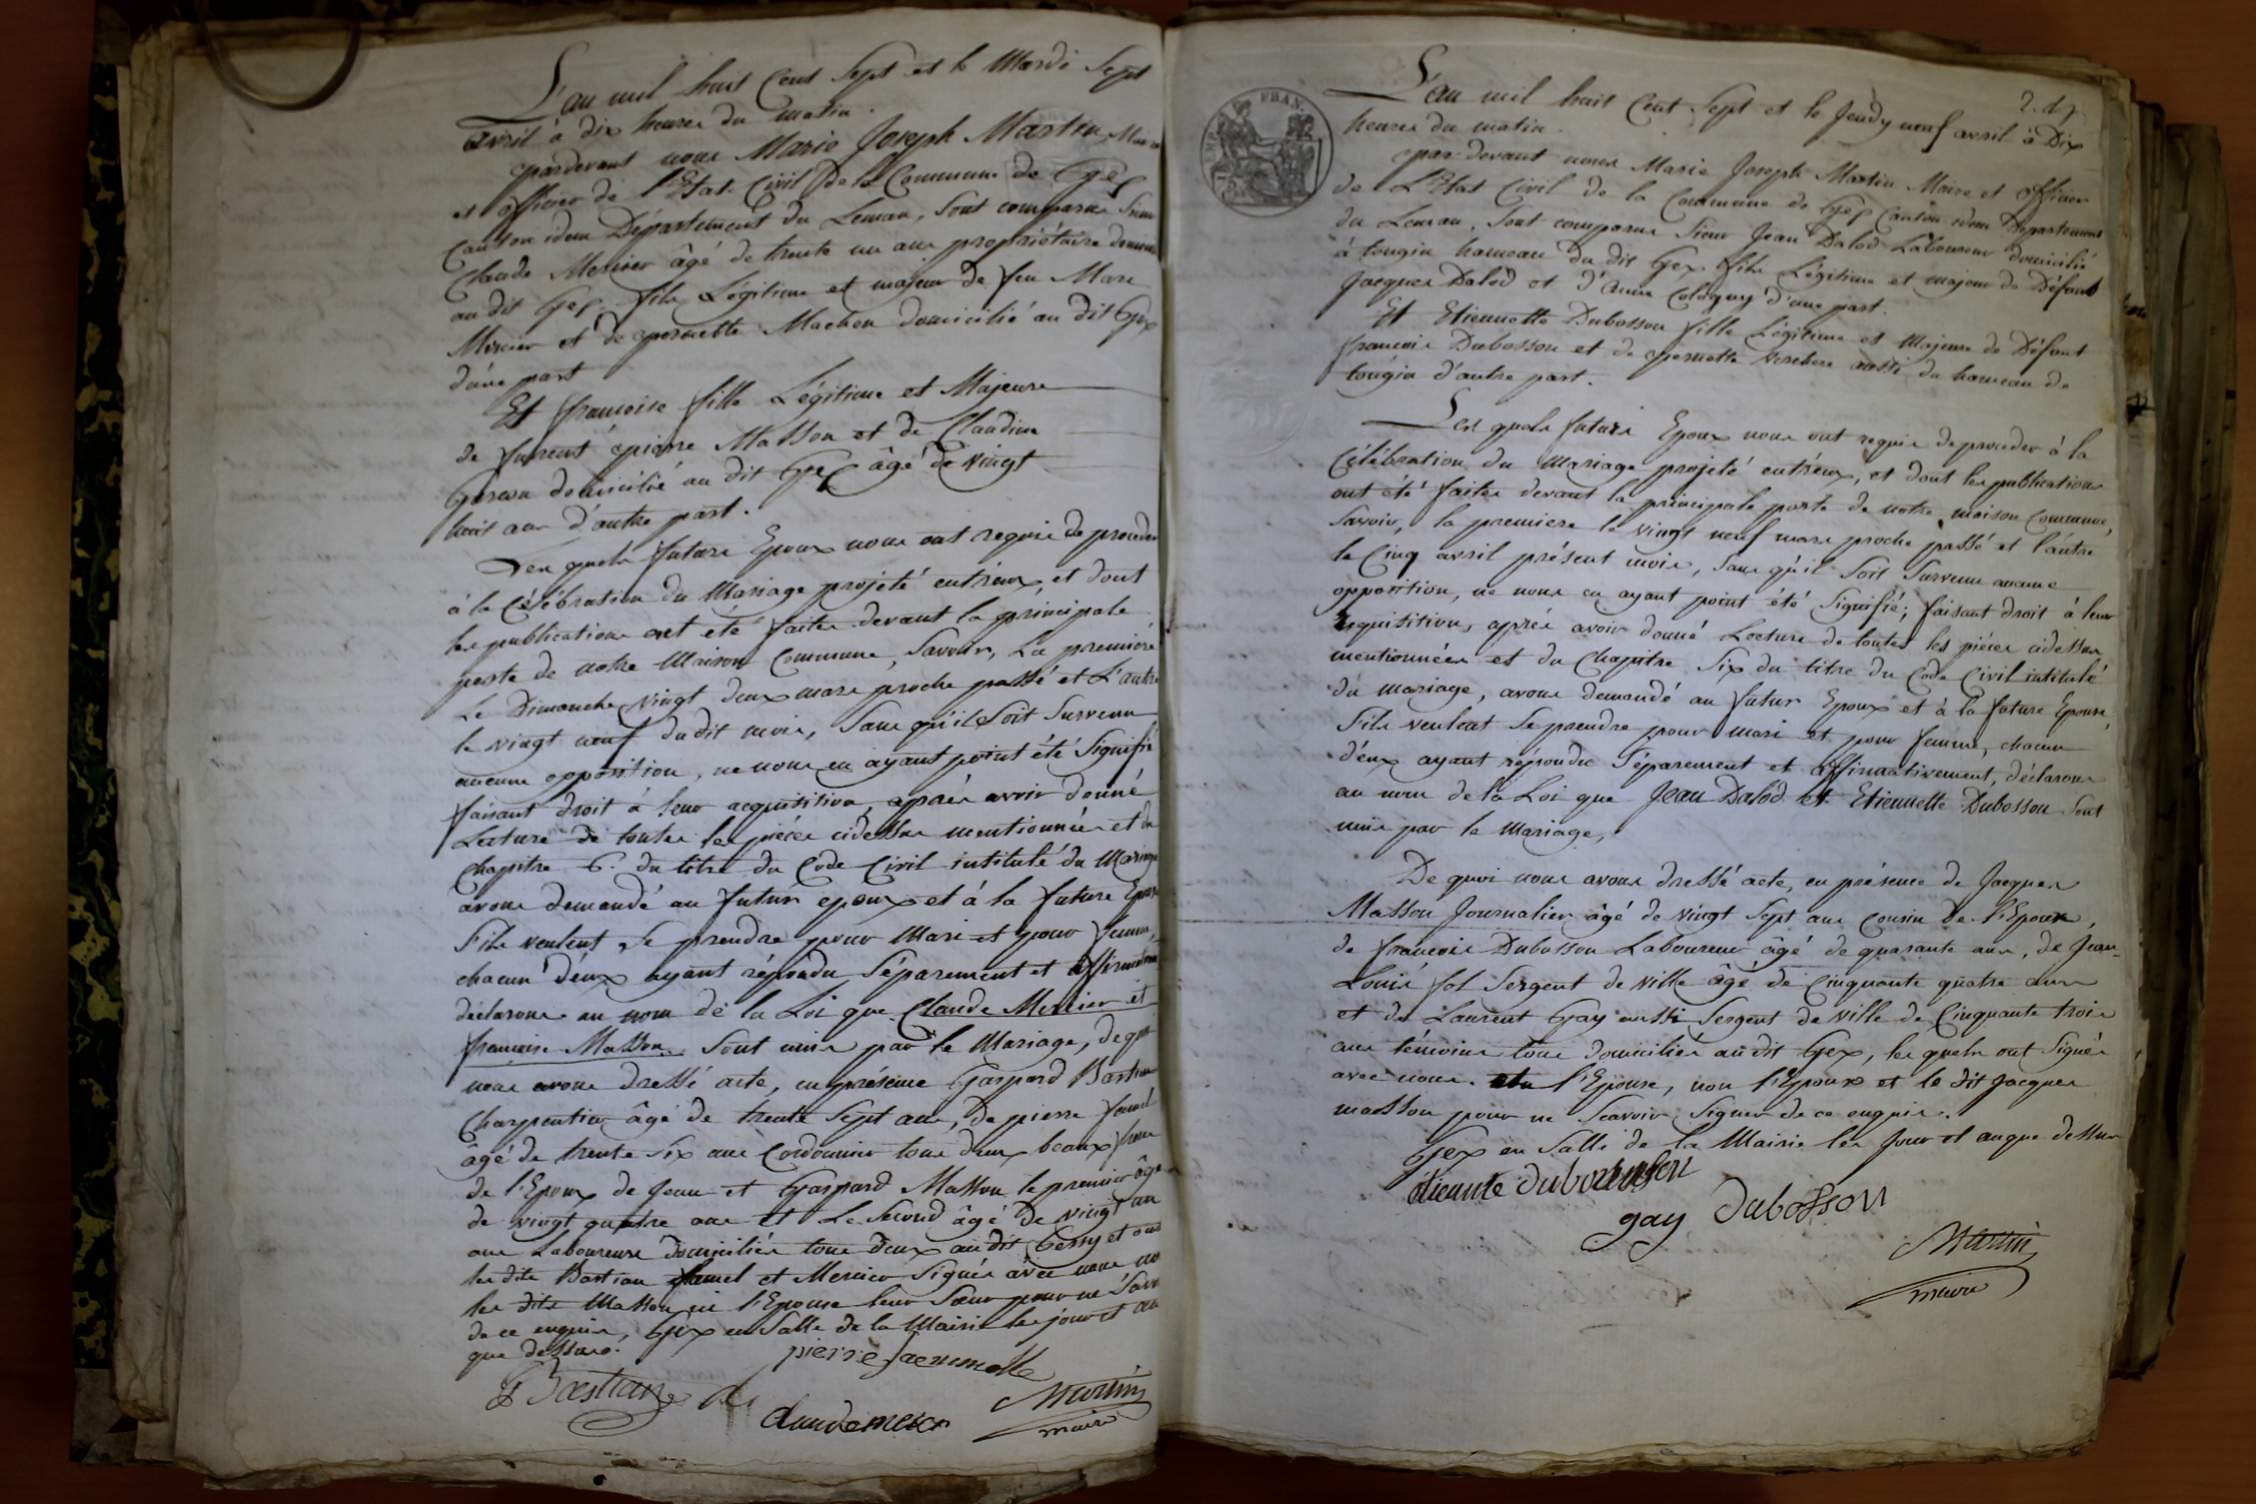 L'an mil huit Cent Sept et le Mardi Sept
avril à dix heures du matin.
pardevant nous Marie Joseph Martin Maire
et officier de l'Etat Civil de la Commune de Gex
Canton idem Département du Leman, Sont comparus Sieur
Claude Mercier âgé de trente un ans propriétaire
au dit Gex fils Légitime et majeur de feu Marc
Mercier et de pernette Machon domicilié au dit Gex
d'une part
Et françoise fille Légitime et Majeure
de pierre Masson et de Claudine
domicilié au dit Gex âgé de vingt
huit ans d'autre part.
Les quels futurs Epoux nous ont requis de proceder
à la Célébration du Mariage projeté entr'eux, et dont
les publications ont été faites devant la principale
porte de notre Maison Commune, Savoir, La premiere
Le Dimanche vingt deux mars proche passé et L'autre
le vingt neuf dudit mois, Sans qu'il Soit Survenu
aucune opposition, ne nous en ayant point été Signifié
faisant droit à leur acquisition, après avoir donné
Lecture de toutes les pièces cidessus mentionnées et du
Chapitre 6. du titre du Code Civil intitulé du Mariage
avons demandé au futur epoux et à la future Epouse
S'ils veulent Se prendre pour Mari et pour femme,
chacun d'eux ayant répondu Séparement et
déclarons au nom de la Loi que Claude Mercier et
françoise Masson Sont unis par le Mariage, de quoi
nous avons dressé acte, en présence Gaspard Bastian
Charpentier âgé de trente Sept ans, de pierre
âgé de trente Six ans Cordonnier tous deux beaux freres
de l'Epoux de Jean et Gaspard Masson le premier âgé
de vingt quatre ans et Le Second âgé de vingt un
ans Laboureurs domiciliés tous deux au dit Cessy et ont
les dits Bastian et Mercier Signés avec nous non
les dits Masson ni l'Epouse leur Sœur pour ne
de ce enquis, Gex en Salle de la Mairie les jour et an
que dessus.
pierre
Bastian
claude mercier
Martin
maire
L'an mil huit Cent Sept et le Jeudy neuf avril à Dix
heures du matin.
par devant nous Marie Joseph Martin Maire et officier
de L'Etat Civil de la Commune de Gex Canton idem Departement
du Leman, Sont comparus Sieur Jean Dalod Laboureur domicilié
à tougin hameau du dit Gex fils Légitime et majeur de Défunt
Jacques Dalod et d'Anne d'une part.
Et Etiennette Dubosson fille Légitime et Majeure de Défunt
françois Dubosson et de pernette aussi du hameau de
tougin d'autre part.
Les quels futurs Epoux nous ont requis de proceder à la
Célébration du Mariage projeté entr'eux, et dont les publications
ont été faites devant la principale porte de notre maison Commune,
Savoir, la premiere le vingt neuf mars proche passé et l'autre
le Cinq avril présent mois, Sans qu'il Soit Survenu aucune
opposition, ne nous en ayant point été Signifié; faisant droit à leur
requisition, après avoir donné Lecture de toutes les pièces cidessus
mentionnées et du Chapitre Six du titre du Code Civil intitulé
du mariage, avons demandé au futur Epoux et à la future Epouse,
S'ils veulent Se prendre pour mari et pour femme, chacun
d'eux ayant répondu Séparement et affirmativement, déclarons
au nom de la Loi que Jean Dalod et Etiennette Dubosson Sont
unis par le Mariage,
De quoi nous avons dressé acte, en présence de Jacques
Masson Journalier âgé de vingt Sept ans Cousin de l'Epoux,
de françois Dubosson Laboureur âgé de quarante ans, de Jean-
Louis fol Sergent de ville âgé de Cinquante quatre ans
et de Laurent Gay aussi Sergent de ville de Cinquante trois
ans témoins tous domiciliés au dit Gex, les quels ont Signés
avec nous. l'Epouse, non l'Epoux et le dit Jacques
masson pour ne Scavoir Signer de ce enquis.
Gex en Salle de la Mairie les Jour et an que dessus
gay Dubosson
Martin
maire